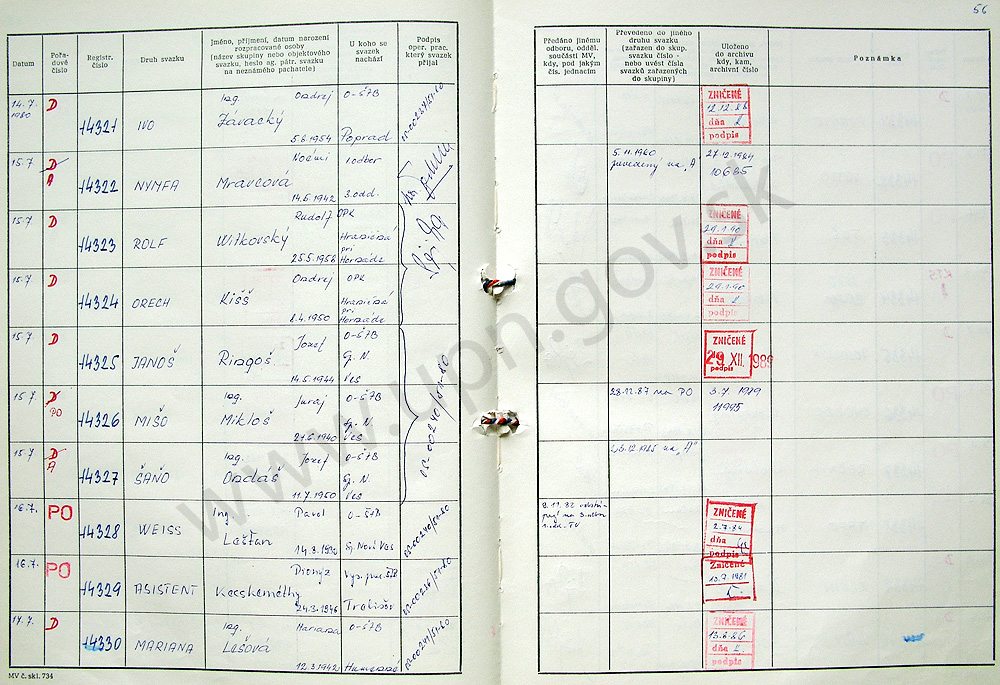 56
Datum
Pořa-
dové
číslo
Registr.
číslo
Druh svazku
Jméno, příjmení, datum narození
rozpracované osoby
(název skupiny nebo objektového
svazku, heslo ag. pátr. svazku
na neznámého pachatele)
U koho se
svazek
nachází
Podpis
oper. prac.
který svazek
přijal
Předáno jinému
odboru, odděl.
součásti MV,
kdy, pod jakým
čís. jednacím
Převedeno do jiného
druhu svazku
(zařazen do skup.
svazku číslo
nebo uvést čísla
svazků zařazených
do skupiny)
Uloženo
do archivu
kdy, kam,
archivní číslo
Poznámka
14.7.
1980
D
14321
IVO
Ing. Ondrej
Závacký
5.6.1954
O-ŠTB
Poprad
ZNIČENÉ
12.12.86
dňa
podpis
15.7
D
A
14322
NYMFA
Noémi
Mravcová
15.4.1942
1. odbor
3. odd.
5.11.1980
prevedený na "A"
27.12.1984
10685
15.7
D
14323
ROLF
Rudolf
Witkovský
25.5.1956
OPK
Hraničná
pri
Hornáde
ZNIČENÉ
29.1.90
dňa
podpis
15.7.
D
14324
ORECH
Ondrej
Kišš
8.4.1950
OPK
Hraničná
pri
Hornáde
ZNIČENÉ
29.1.90
dňa
podpis
15.7.
D
14325
JANOŠ
Jozef
Ringoš
14.5.1944
O-ŠTB
Sp. N.
Ves
ZNIČENÉ
29. XII. 1989
podpis
15.7.
D
PO
14326
MIŠO
Ing. Juraj
Mikloš
21.6.1940
O-ŠTB
Sp. N.
Ves
28.12.87 na PO
3.7.1989
11945
15.7
D
A
14327
ŠAŇO
Ing. Jozef
Ondáš
11.7.1950
O-ŠTB
Sp. N.
Ves
26.12.1985 na "A"
16.7.
PO
14328
WEISS
Ing. Pavol
Lešťan
O-ŠTB
Sp. Nová Ves
ZNIČENÉ
2.7.84
dňa
podpis
16.7.
PO
14329
ASISTENT
Dionýz
Kecskeméthy
24.3.1946
Trebišov
Zničené
17.7.
D
14330
MARIANA
Ing. Mariana
Lešová
12.3.1942
O-ŠTB
Humenné
ZNIČENÉ
13.6.86
dňa
podpis
MV č. skl. 734
www.upn.gov.sk